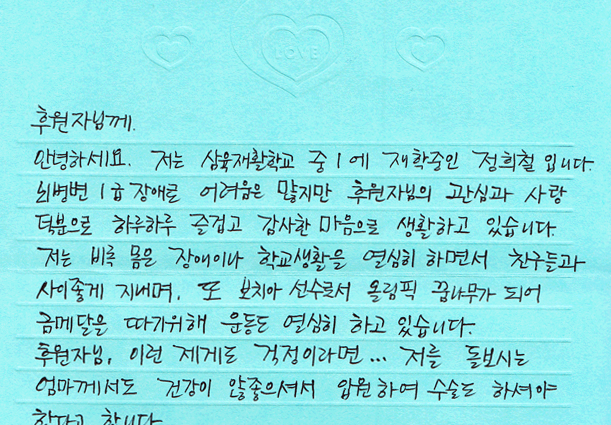 LOVE
후원자님께.
안녕하세요. 저는 삼육재활학교 중1에 재학중인 정희철입니다.
뇌병변 1급 장애로 어려움은 많지만 후원자님의 관심과 사랑
덕분으로 하루하루 즐겁고 감사한 마음으로 생활하고 있습니다.
저는 비록 몸은 장애이나 학교생활을 열심히 하면서 친구들과
사이좋게 지내며, 또 보치아 선수로서 올림픽 꿈나무가 되어
금메달을 따기위해 운동도 열심히 하고 있습니다.
후원자님, 이런 제게도 걱정이라면... 저를 돌보시는
엄마께서도 건강이 않좋으셔서 입원하여 수술도 하셔야
한다고 합니다.